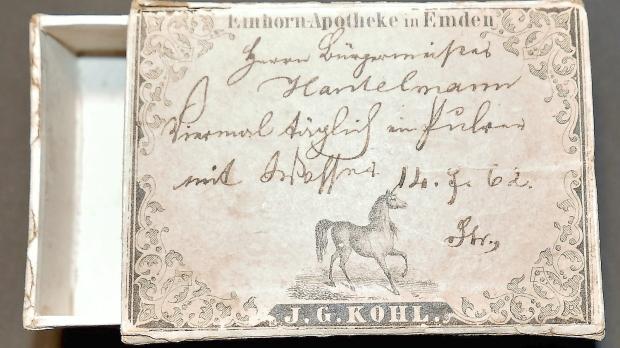 Einhorn-Apotheke in Emden
Herrn Bürgermeister
Hantelmann
Viermal täglich ein Pulver
mit Wasser 14. 7. 62.
J. G. KOHL.